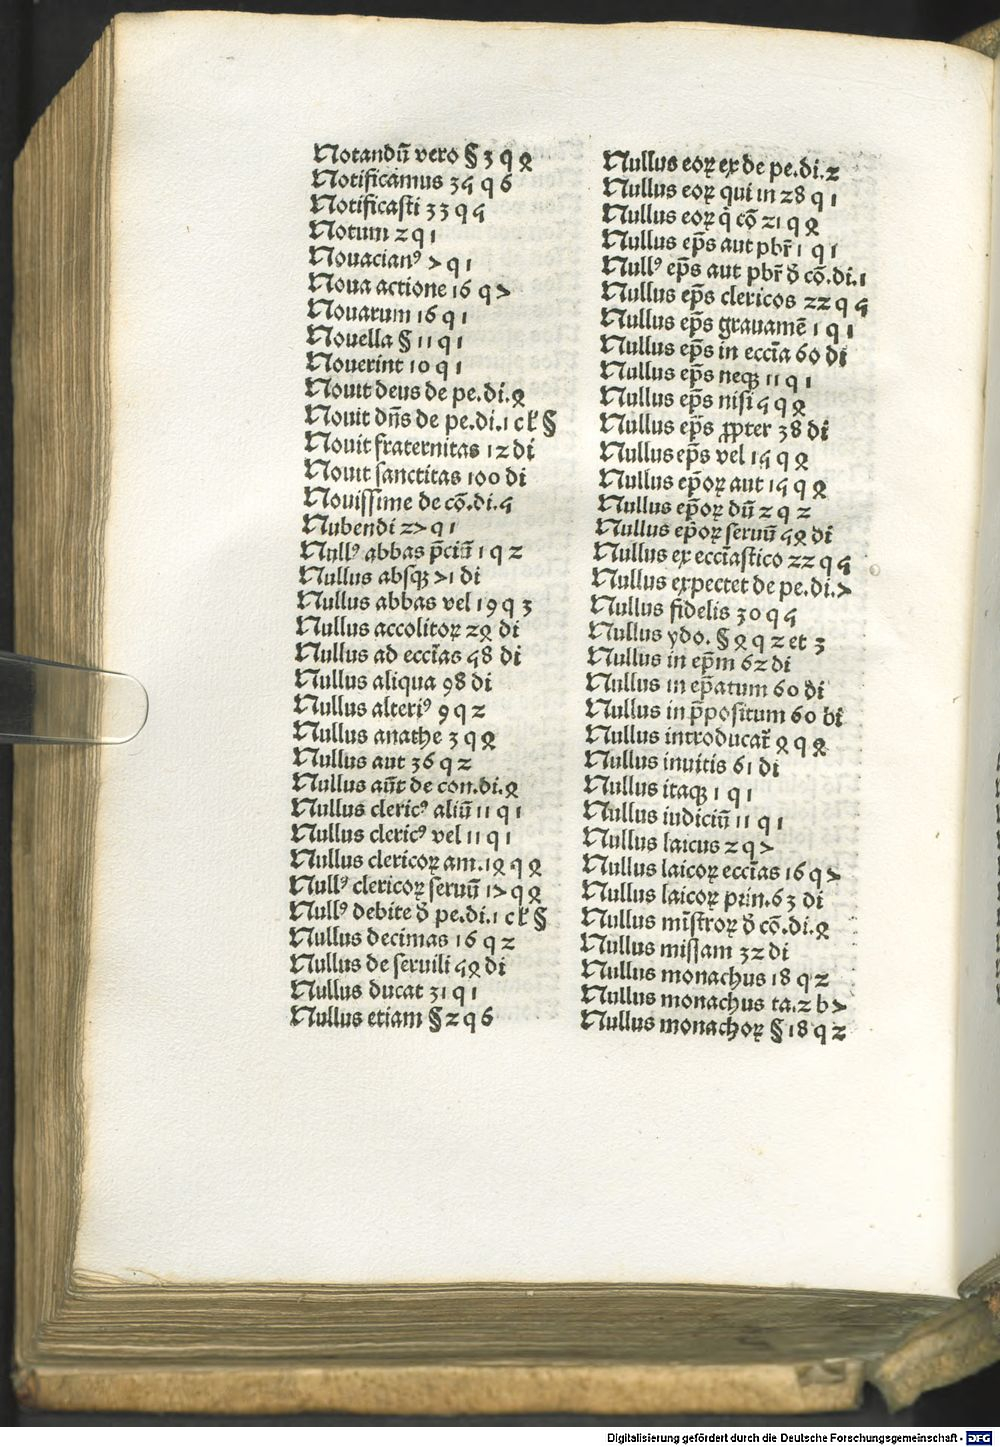 Notandū vero § 3 q 4
Notificamus 35 q 6
Notificasti 33 q 5
Notum 2 q 1
Nouacianꝰ 7 q 1
Noua actione 16 q 7
Nouarum 16 q 1
Nouella § 11 q 1
Nouerint 10 q 1
Nouit deus de pe.di.4
Nouit dn̄s de pe.di.1 c k̄ §
Nouit fraternitas 12 di
Nouit sanctitas 100 di
Nouissime de cō.di.5
Nubendi 27 q 1
Nullꝰ abbas p̄ciū 1 q 2
Nullus absqꝫ 71 di
Nullus abbas vel 19 q 3
Nullus accolitoꝝ 24 di
Nullus ad eccl̄as 58 di
Nullus aliqua 98 di
Nullus alteriꝰ 9 q 2
Nullus anathe 3 q 4
Nullus aut 36 q 2
Nullus aūt de con.di.4
Nullus clericꝰ aliū 11 q 1
Nullus clericꝰ vel 11 q 1
Nullus clericoꝝ am.14 q 4
Nullꝰ clericoꝝ seruū 17 q 4
Nullꝰ debite d̄ pe.di.1 c k̄ §
Nullus decimas 16 q 2
Nullus de seruili 54 di
Nullus ducat 31 q 1
Nullus etiam § 2 q 6
Nullus eoꝝ ex de pe.di.2
Nullus eoꝝ qui in 28 q 1
Nullus eoꝝ q̇ cō 21 q 4
Nullus ep̄s aut pbr̄ 1 q 1
Nullꝰ ep̄s aut pbr̄ d̄ cō.di.1
Nullus ep̄s clericos 22 q 5
Nullus ep̄s grauamē 1 q 1
Nullus ep̄s in eccl̄ia 60 di
Nullus ep̄s neqꝫ 11 q 1
Nullus ep̄s nisi 5 q 4
Nullus ep̄s ꝓpter 38 di
Nullus ep̄s vel 15 q 4
Nullus ep̄oꝝ aut 15 q 4
Nullus ep̄oꝝ dū 2 q 2
Nullus ep̄oꝝ seruū 54 di
Nullus ex eccl̄astico 22 q 5
Nullus expectet de pe.di.7
Nullus fidelis 30 q 5
Nullus ydo. § 4 q 2 et 3
Nullus in ep̄m 62 di
Nullus in ep̄atum 60 di
Nullus in p̄positum 60 di
Nullus introducat̄ 4 q 4
Nullus inuitis 61 di
Nullus itaqꝫ 1 q 1
Nullus iudiciū 11 q 1
Nullus laicus 2 q 7
Nullus laicoꝝ eccl̄as 16 q 7
Nullus laicoꝝ prin.63 di
Nullus mīstroꝝ d̄ cō.di.4
Nullus missam 32 di
Nullus monachus 18 q 2
Nullus monachus ta.2 b 7
Nullus monachoꝝ § 18 q 2
Digitalisierung gefördert durch die Deutsche Forschungsgemeinschaft - DFG